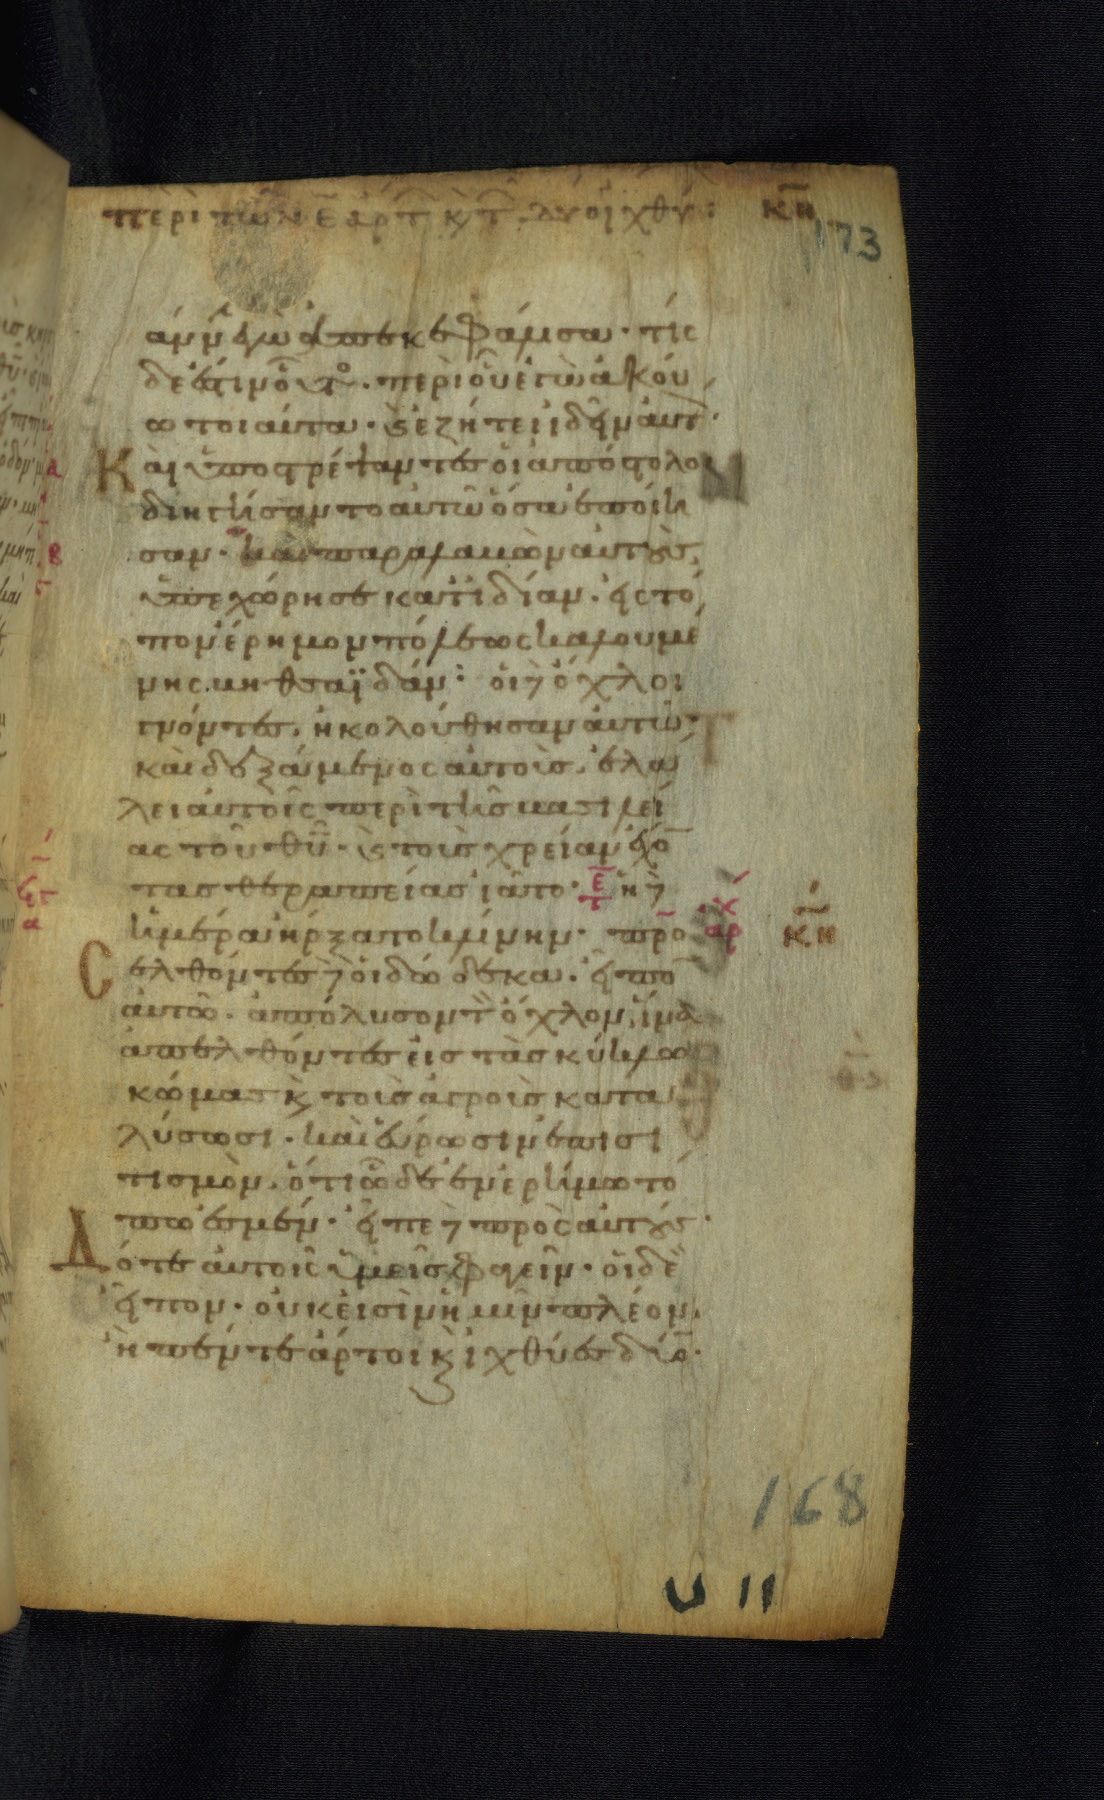 περὶ τῶν ε̄ ἄρτ κ τ δύο ἰχθύ: κη
173
άνν ἐγὼ ἀπεκεφάλισα· τίς
δέ ἐστιν οὗτο· περὶ οὗ ἐγὼ ἀκού
ω τοιαῦτα· καὶ ἐζήτει ἰδεῖν αὐτ·
Καὶ ὑποστρέψαντες οἱ ἀπόστολοι
διηγήσαντο αὐτῶ ὅσα ἐποίη
σαν· καὶ παραλαβὼν αὐτοὺς
ὑπεχώρησε κατϊδίαν· εἰς τό
πον ἔρημον πόλεως καλουμέ
νης βηθσαϊδάν· οἱ δὲ ὄχλοι
γνόντες, ἠκολούθησαν αὐτῶ·
καὶ δεξάμενος αὐτοὺς ἐλά
λει αὐτοῖς περὶ τῆς βασιλεί
ας τοῦ θυ· καὶ τοὺς χρείαν ἔχο
τας θεραπείας ἰᾶτο· ε̄ τ ἡ δὲ
ἡμέρα ἤρξατο κλίνειν· προ αρχ κη
Σελθόντες δὲ οἱ δώδεκα· εἶπο
αὐτῶ· ἀπόλυσον τὸ ὄχλον, ἵνα
ἀπελθόντες εἰς τὰς κύκλω
κώμας κ τοὺς ἀγροὺς κατα
λύσωσι· καὶ εὕρωσιν ἐπισι
τισμὸν. ὅτι ὧδε ἐν ἐρήμω τό
πω ἐσμέν· εἶπε δὲ πρὸς αὐτούς·
Δότε αὐτοῖς ὑμεῖς φαγεῖν· οἱ δὲ
εἶπον· οὐκ εἰσὶν ἡμῖν πλέον
ἢ πέντε ἄρτοι κ ἰχθύες δύο·
168
U 11